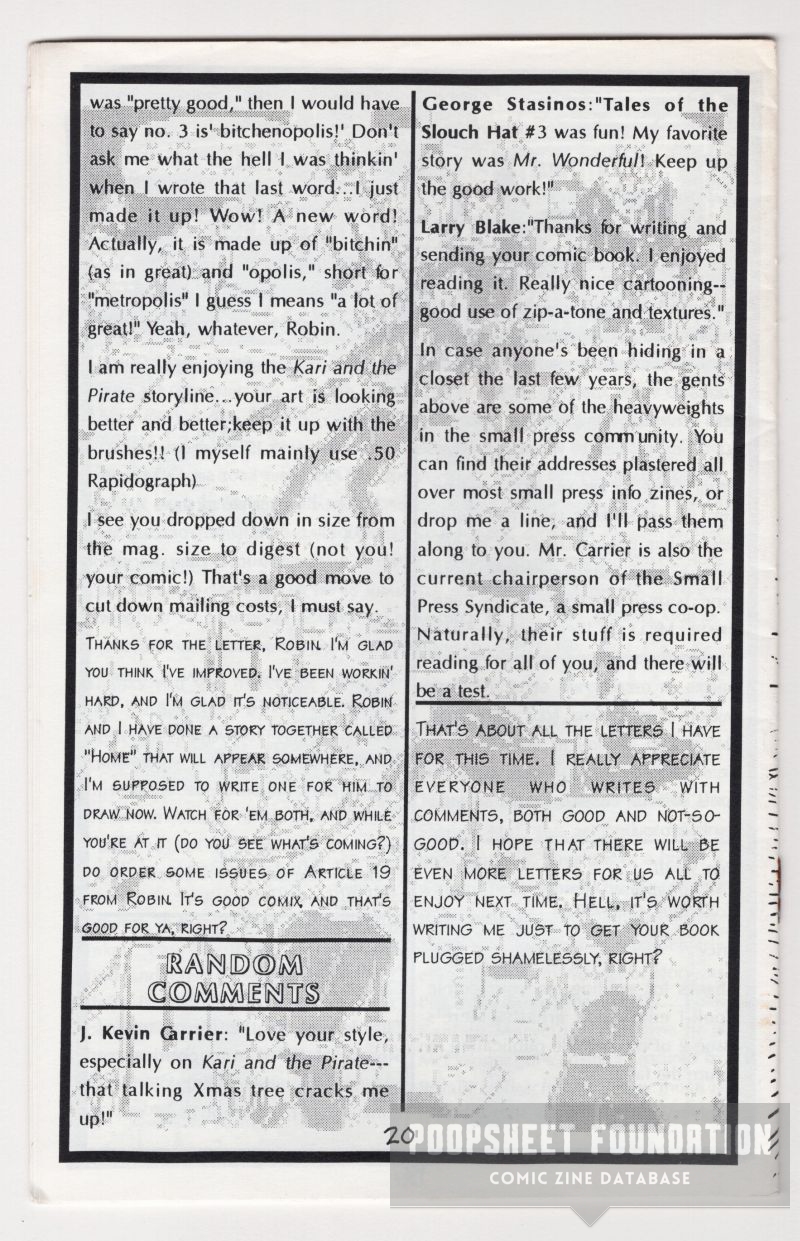 was "pretty good," then I would have
to say no. 3 is' bitchenopolis!' Don't
ask me what the hell I was thinkin'
when I wrote that last word...I just
made it up! Wow! A new word!
Actually, it is made up of "bitchin"
(as in great) and "opolis," short for
"metropolis" I guess I means "a lot of
great!" Yeah, whatever, Robin.
I am really enjoying the Kari and the
Pirate storyline...your art is looking
better and better;keep it up with the
brushes!! (I myself mainly use .50
Rapidograph)
I see you dropped down in size from
the mag. size to digest (not you!
your comic!) That's a good move to
cut down mailing costs, I must say.
THANKS FOR THE LETTER, ROBIN. I'M GLAD
YOU THINK I'VE IMPROVED. I'VE BEEN WORKIN'
HARD, AND I'M GLAD IT'S NOTICEABLE. ROBIN
AND I HAVE DONE A STORY TOGETHER CALLED
"HOME" THAT WILL APPEAR SOMEWHERE, AND
I'M SUPPOSED TO WRITE ONE FOR HIM TO
DRAW NOW. WATCH FOR 'EM BOTH, AND WHILE
YOU'RE AT IT (DO YOU SEE WHAT'S COMING?)
DO ORDER SOME ISSUES OF ARTICLE 19
FROM ROBIN. IT'S GOOD COMIX, AND THAT'S
GOOD FOR YA, RIGHT?
RANDOM
COMMENTS
J. Kevin Carrier: "Love your style,
especially on Kari and the Pirate---
that talking Xmas tree cracks me
up!"
George Stasinos:"Tales of the
Slouch Hat #3 was fun! My favorite
story was Mr. Wonderful! Keep up
the good work!"
Larry Blake:"Thanks for writing and
sending your comic book. I enjoyed
reading it. Really nice cartooning--
good use of zip-a-tone and textures."
In case anyone's been hiding in a
closet the last few years, the gents
above are some of the heavyweights
in the small press community. You
can find their addresses plastered all
over most small press info zines, or
drop me a line, and I'll pass them
along to you. Mr. Carrier is also the
current chairperson of the Small
Press Syndicate, a small press co-op.
Naturally, their stuff is required
reading for all of you, and there will
be a test.
THAT'S ABOUT ALL THE LETTERS I HAVE
FOR THIS TIME. I REALLY APPRECIATE
EVERYONE WHO WRITES WITH
COMMENTS, BOTH GOOD AND NOT-SO-
GOOD. I HOPE THAT THERE WILL BE
EVEN MORE LETTERS FOR US ALL TO
ENJOY NEXT TIME. HELL, IT'S WORTH
WRITING ME JUST TO GET YOUR BOOK
PLUGGED SHAMELESSLY, RIGHT?
20
POOPSHEET FOUNDATION
COMIC ZINE DATABASE